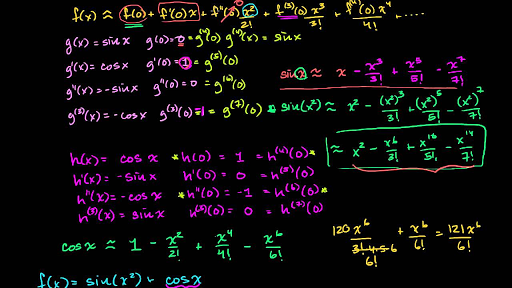 f(x) ≈ f(0) + f'(0)x + f''(0) x²/2! + f⁽³⁾(0) x³/3! + f⁽⁴⁾(0) x⁴/4! + ....
g(x) = sin x g(0) = 0 = g⁽⁴⁾(0) g⁽⁴⁾(x) = sin x
g'(x) = cos x g'(0) = 1 = g⁽⁵⁾(0)
sin x ≈ x - x³/3! + x⁵/5! - x⁷/7!
g''(x) = -sin x g''(0) = 0 = g⁽⁶⁾(0)
g⁽³⁾(x) = -cos x g⁽³⁾(0) = -1 = g⁽⁷⁾(0)
sin(x²) ≈ x² - (x²)³/3! + (x²)⁵/5! - (x²)⁷/7!
≈ x² - x⁶/3! + x¹⁰/5! - x¹⁴/7!
h(x) = cos x * h(0) = 1 = h⁽⁴⁾(0) *
h'(x) = -sin x h'(0) = 0 = h⁽⁵⁾(0)
h''(x) = -cos x * h''(0) = -1 = h⁽⁶⁾(0) *
h⁽³⁾(x) = sin x h⁽³⁾(0) = 0 = h⁽⁷⁾(0)
cos x ≈ 1 - x²/2! + x⁴/4! - x⁶/6!
120x⁶/3!·4·5·6 + x⁶/6! = 121x⁶/6!
6!
f(x) = sin(x²) + cos x